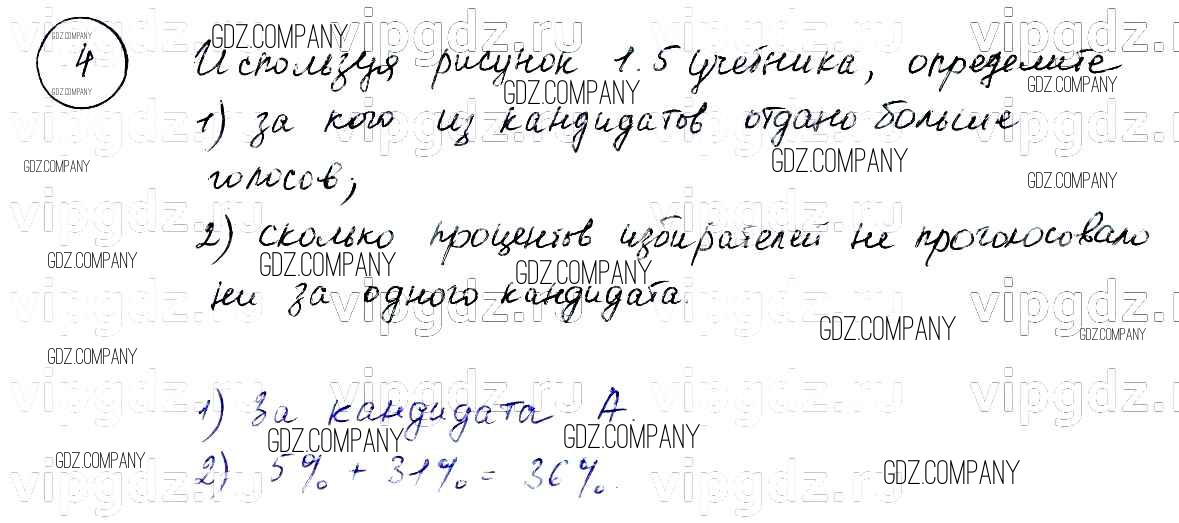 4 Используя рисунок 1.5 учебника, определите
1) за кого из кандидатов отдано больше
голосов;
2) сколько процентов избирателей не проголосовало
ни за одного кандидата.
1) За кандидата А.
2) 5% + 31% = 36%.
vipgdz.ru
GDZ.COMPANY